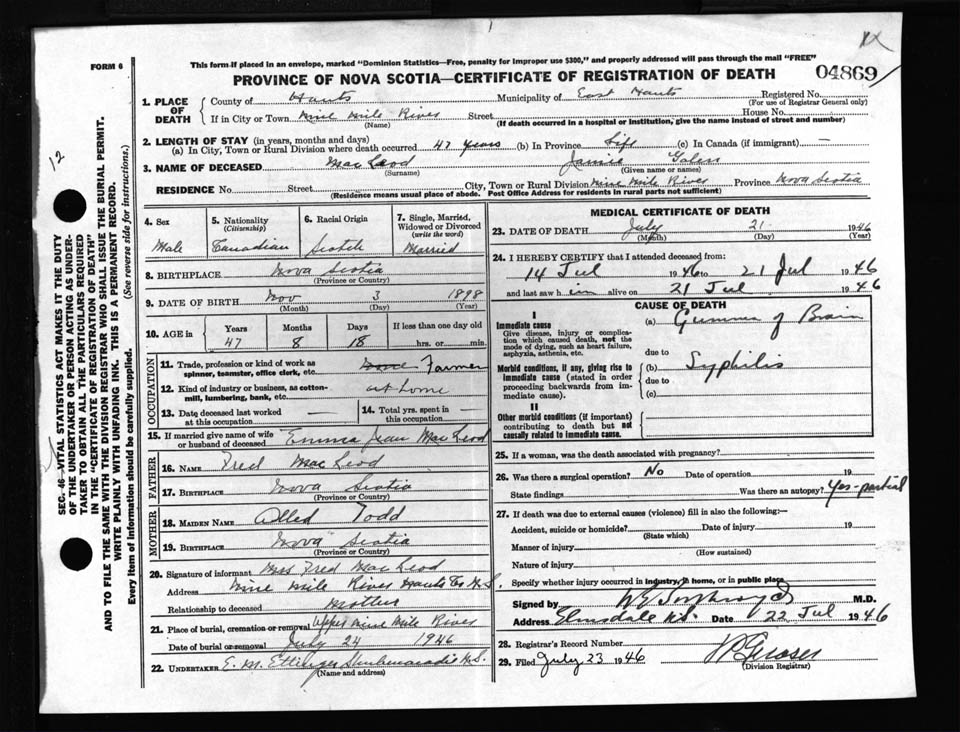 FORM 6
This form if placed in an envelope, marked "Dominion Statistics—Free, penalty for improper use $300," and properly addressed will pass through the mail "FREE"
PROVINCE OF NOVA SCOTIA—CERTIFICATE OF REGISTRATION OF DEATH
04869
12
SEC. 46—VITAL STATISTICS ACT MAKES IT THE DUTY
OF THE UNDERTAKER OR PERSON ACTING AS UNDER-
TAKER TO OBTAIN ALL THE PARTICULARS REQUIRED
IN THE "CERTIFICATE OF REGISTRATION OF DEATH"
AND TO FILE THE SAME WITH THE DIVISION REGISTRAR WHO SHALL ISSUE THE BURIAL PERMIT.
WRITE PLAINLY WITH UNFADING INK. THIS IS A PERMANENT RECORD.
Every item of information should be carefully supplied. (See reverse side for instructions.)
1. PLACE OF DEATH
County of Hants Municipality of East Hants Registered No.
(For use of Registrar General only)
If in City or Town Nine Mile River Street House No.
(Name) (If death occurred in a hospital or institution, give the name instead of street and number)
2. LENGTH OF STAY (in years, months and days)
(a) In City, Town or Rural Division where death occurred 47 years (b) In Province Life (c) In Canada (if immigrant) —
3. NAME OF DECEASED Mac Leod Jamie
(Surname) (Given name or names)
RESIDENCE No. Street City, Town or Rural Division Nine Mile River Province Nova Scotia
(Residence means usual place of abode. Post Office Address for residents in rural parts not sufficient)
4. Sex Male
5. Nationality (Citizenship) Canadian
6. Racial Origin Scotch
7. Single, Married, Widowed or Divorced (write the word) Married
8. BIRTHPLACE Nova Scotia
(Province or Country)
9. DATE OF BIRTH Nov 3 1898
(Month) (Day) (Year)
10. AGE in Years Months Days If less than one day old
47 8 18 hrs. or min.
OCCUPATION
11. Trade, profession or kind of work as spinner, teamster, office clerk, etc. Farmer
12. Kind of industry or business, as cotton-mill, lumbering, bank, etc. at home
13. Date deceased last worked at this occupation —
14. Total yrs. spent in this occupation —
15. If married give name of wife or husband of deceased Emma Jean Mac Leod
FATHER
16. NAME Fred Mac Leod
17. BIRTHPLACE Nova Scotia
(Province or Country)
MOTHER
18. MAIDEN NAME Todd
19. BIRTHPLACE Nova Scotia
(Province or Country)
20. Signature of informant Mrs Fred Mac Leod
Address Nine Mile River Hants Co N.S.
Relationship to deceased Mother
21. Place of burial, cremation or removal Upper Nine Mile River
Date of burial or removal July 24 1946
22. UNDERTAKER E. M. Ettinger Shubenacadie N.S.
(Name and address)
MEDICAL CERTIFICATE OF DEATH
23. DATE OF DEATH July 21 1946
(Month) (Day) (Year)
24. I HEREBY CERTIFY that I attended deceased from:
14 Jul 1946 to 21 Jul 1946
and last saw h im alive on 21 Jul 1946
CAUSE OF DEATH
I
Immediate cause (a) Gumma of Brain
Give disease, injury or complication which caused death, not the mode of dying, such as heart failure, asphyxia, asthenia, etc.
due to
Morbid conditions, if any, giving rise to immediate cause (stated in order proceeding backwards from immediate cause). (b) Syphilis
due to
(c)
II
Other morbid conditions (if important) contributing to death but not causally related to immediate cause.
25. If a woman, was the death associated with pregnancy?
26. Was there a surgical operation? No Date of operation 19
State findings Was there an autopsy? Yes - partial
27. If death was due to external causes (violence) fill in also the following:—
Accident, suicide or homicide? Date of injury 19
(State which)
Manner of injury
(How sustained)
Nature of injury
Specify whether injury occurred in industry, in home, or in public place
Signed by M.D.
Address Elmsdale N.S. Date 22 Jul 1946
28. Registrar's Record Number
29. Filed July 23 1946
(Division Registrar)